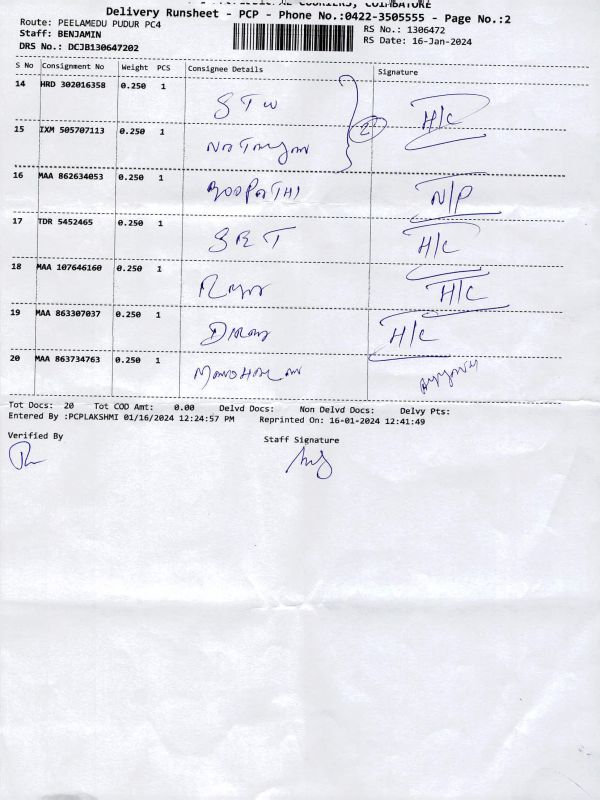 COURIERS, COIMBATORE
Delivery Runsheet - PCP - Phone No.:0422-3505555 - Page No.:2
Route: PEELAMEDU PUDUR PC4
RS No.: 1306472
Staff: BENJAMIN
RS Date: 16-Jan-2024
DRS No.: DCJB130647202
S No Consignment No Weight PCS Consignee Details Signature
14 HRD 302016358 0.250 1 STW H/C
15 IXM 505707113 0.250 1 2
16 MAA 862634053 0.250 1 BOOPATHI N/P
17 TDR 5452465 0.250 1 SRT H/C
18 MAA 107646160 0.250 1 H/C
19 MAA 863307037 0.250 1 H/C
20 MAA 863734763 0.250 1
Tot Docs: 20 Tot COD Amt: 0.00 Delvd Docs: Non Delvd Docs: Delvy Pts:
Entered By :PCPLAKSHMI 01/16/2024 12:24:57 PM Reprinted On: 16-01-2024 12:41:49
Verified By Staff Signature